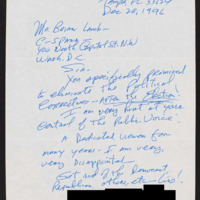 Tampa FL 33624
Dec 20, 1996
Mr. Brian Lamb-
C-SPAN
400 North Capitol St. N.W.
Wash. D.C.
Sir-
You specifically promised
to eliminate the Political
Correctness - after the election!
I am very hurt at your
of the Public Voice.
A Dedicated viewer for
many years - I am very,
very Disappointed.
Democrat,
Republican, others, etc